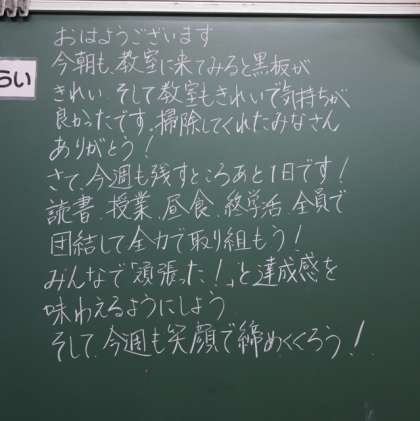 うい
おはようございます
今朝も、教室に来てみると黒板が
きれい。そして教室もきれいで気持ちが
良かったです。掃除してくれたみなさん
ありがとう！
さて、今週も残すところあと1日です！
読書、授業、昼食、終学活、全員で
団結して全力で取り組もう！
みんなで「頑張った！」と達成感を
味わえるようにしよう
そして、今週も笑顔で締めくくろう！